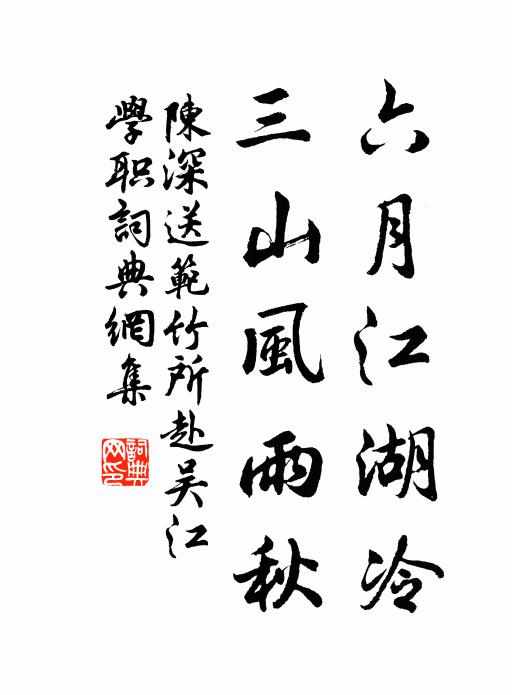 六月江湖冷
三山風雨秋
陳深送範竹所赴吴江
學职詞典網集
詞典
网印